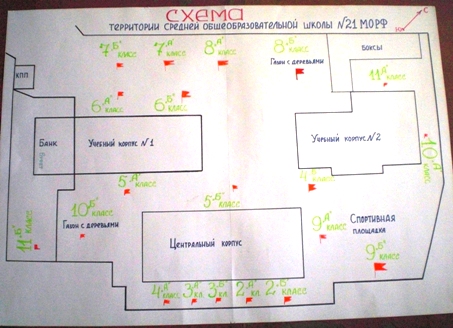 СХЕМА
ТЕРРИТОРИИ СРЕДНЕЙ ОБЩЕОБРАЗОВАТЕЛЬНОЙ ШКОЛЫ №21 МО РФ
С
7"Б" класс
7"А" класс
8"А" класс
8"Б" класс
БОКСЫ
Газон с деревьями
КПП
11"А" класс
6"А" класс
6"Б" класс
Банк
Учебный корпус №1
Учебный корпус №2
10"А" класс
5"А" класс
5"Б" класс
10"Б" класс
Газон с деревьями
11"Б" класс
9"А" класс
Спортивная
площадка
Центральный корпус
9"Б" класс
4"А" класс
3"А" кл.
3"Б" кл.
2"А" кл.
2"Б" класс